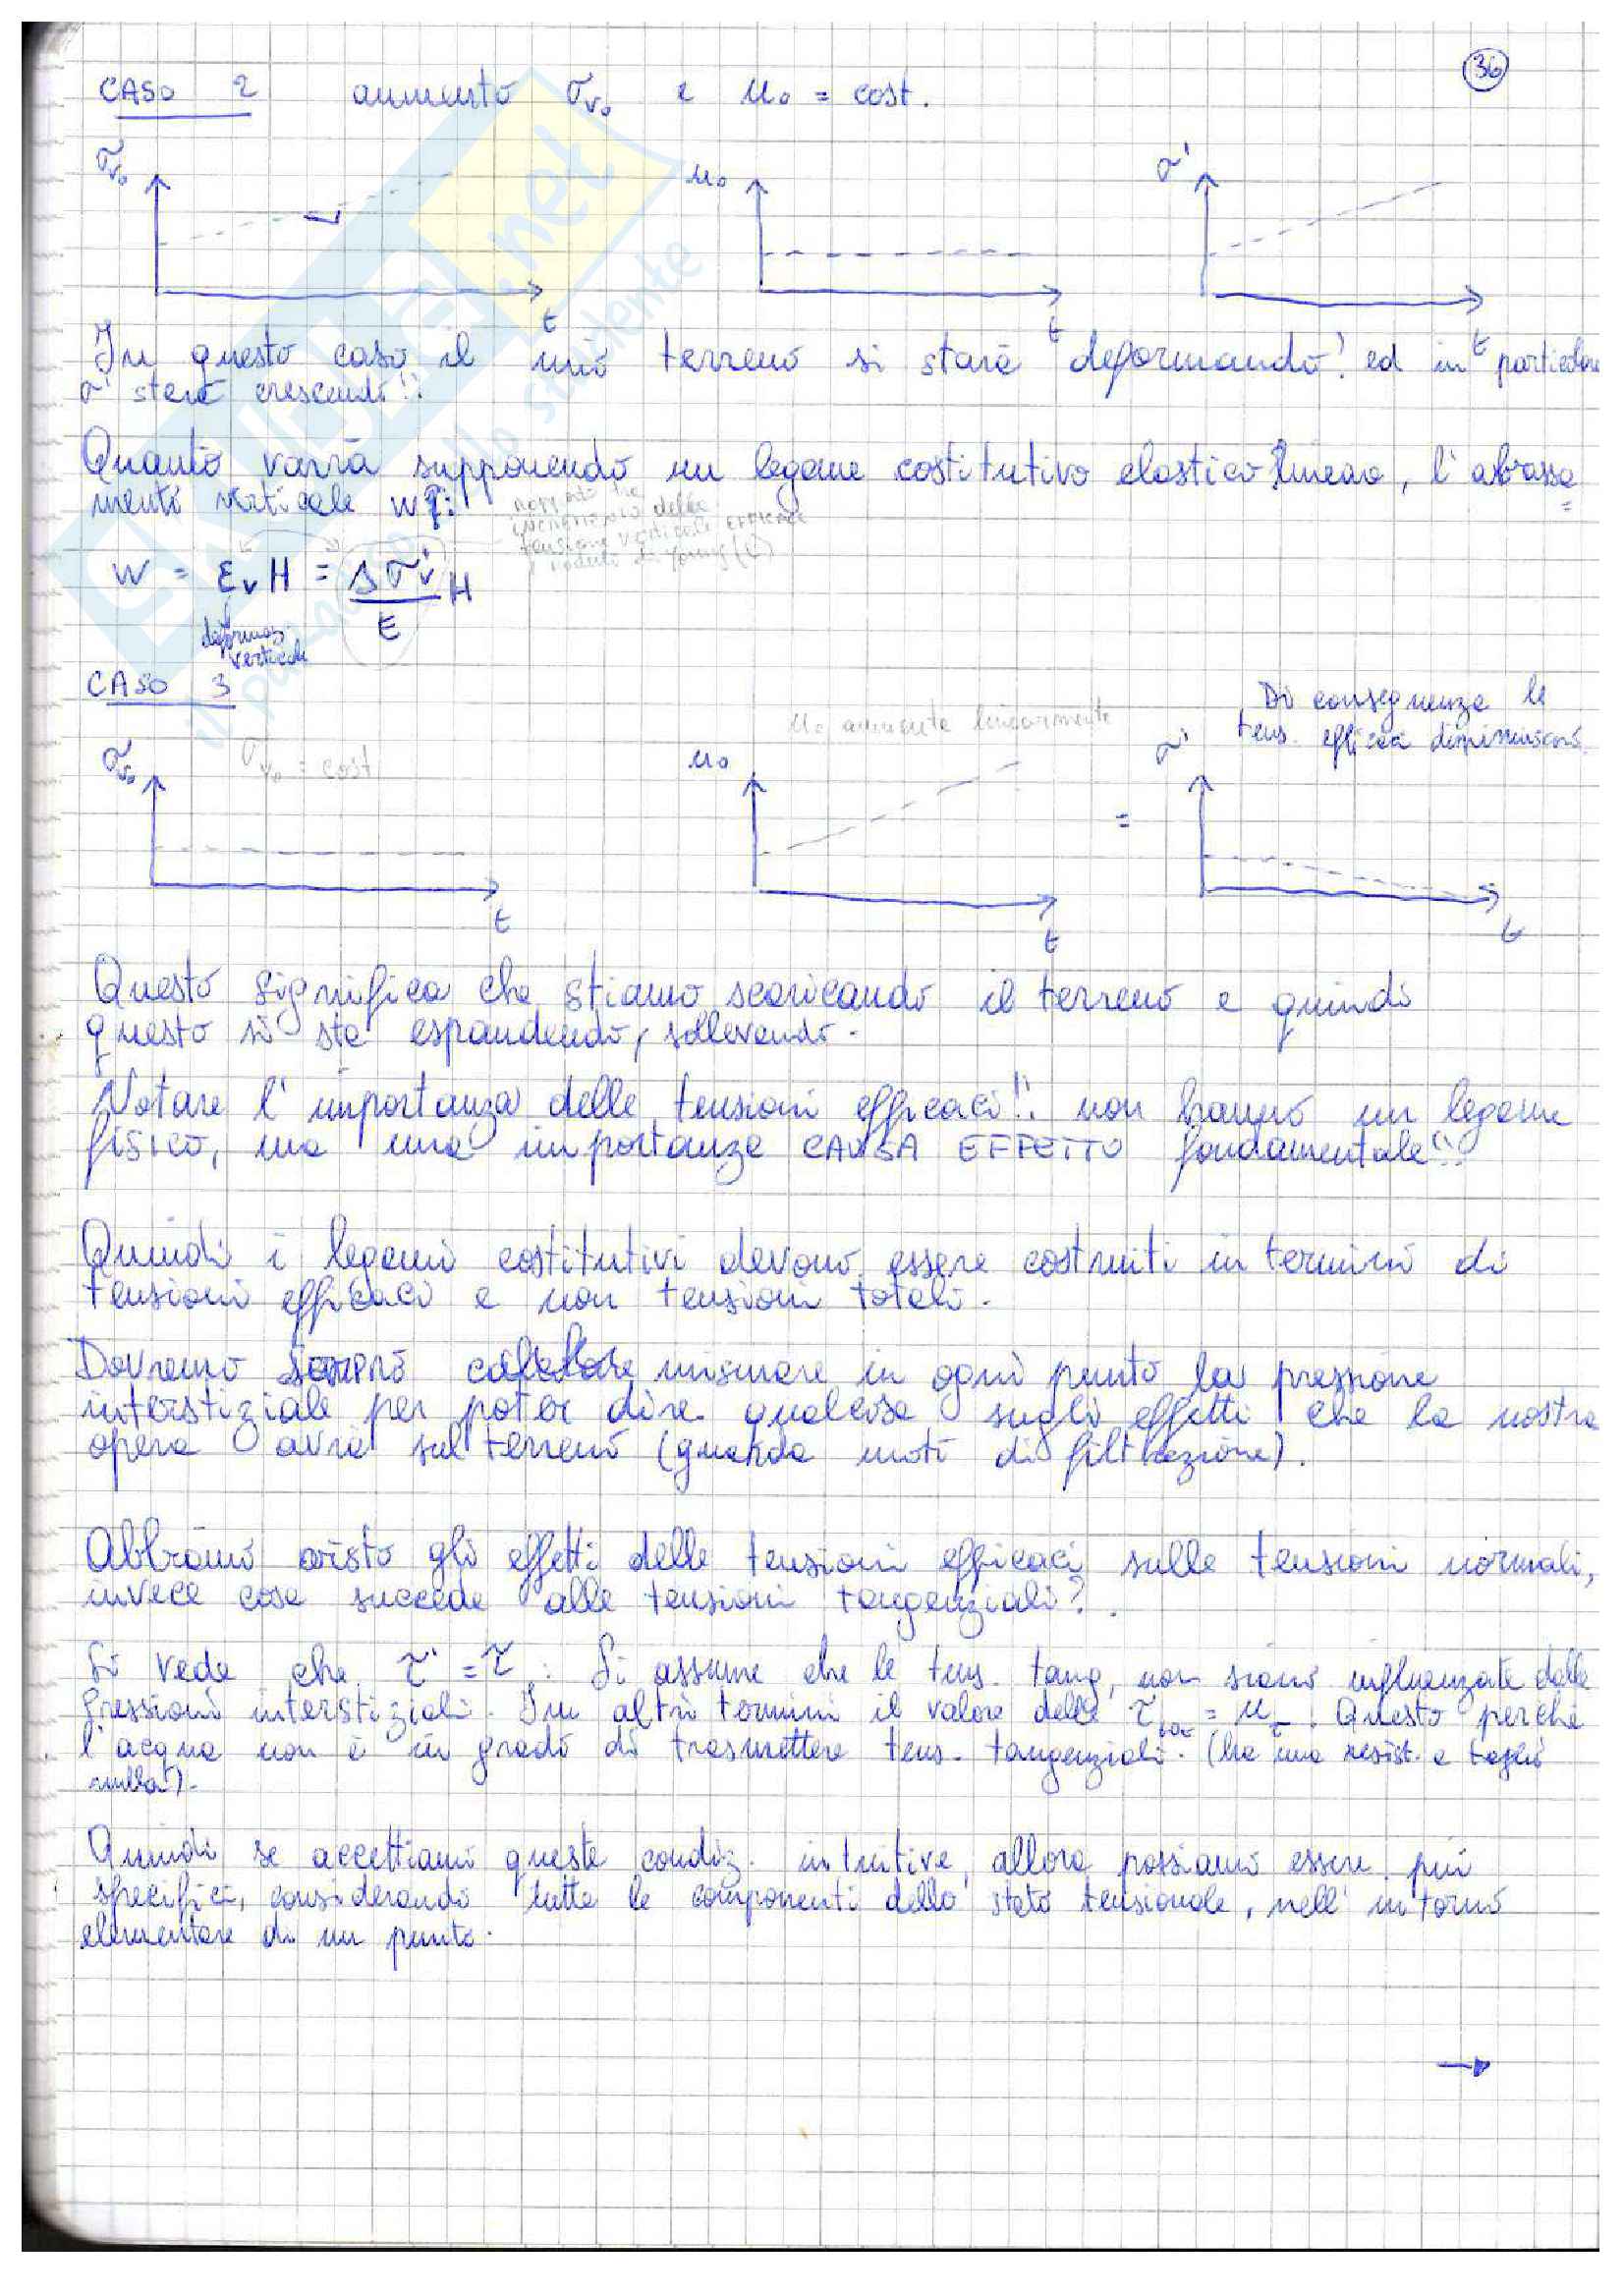 36
CASO 2 aumento σv₀ e u₀ = cost.
σv₀ u₀ σ'
t t t
In questo caso il mio terreno si starà deformando! ed in particolare
σ' sterà crescendo!!
Quanto varrà supponendo un legame costitutivo elastico lineare, l'abbassa=
mento verticale w?:
rapporto tra
incremento della
tensione verticale EFFICACE
e modulo di Young (E)
W = εv H = Δσ'v/E H
deformaz.
verticale
CASO 3
Di conseguenza le
tens. efficaci diminuiscono.
σv₀ σv₀ = cost u₀ u₀ aumenta linearmente = σ'
t t t
Questo significa che stiamo scaricando il terreno e quindi
questo si sta espandendo, sollevando.
Notare l'importanza delle tensioni efficaci!! non hanno un legame
fisico, ma una importanza CAUSA EFFETTO fondamentale!!
Quindi i legami costitutivi devono essere costruiti in termini di
tensioni efficaci e non tensioni totali.
Dovremo sempre misurare in ogni punto la pressione
interstiziale per poter dire qualcosa sugli effetti che la nostra
opera avrà sul terreno (guarda moti di filtrazione).
Abbiamo visto gli effetti delle tensioni efficaci sulle tensioni normali,
invece cosa succede alle tensioni tangenziali?.
Si vede che τ' = τ. Si assume che le tens. tang, non siano influenzate dalle
pressioni interstiziali. In altri termini il valore delle τ = u. Questo perché
l'acqua non è in grado di trasmettere tens. tangenziali. (ha una resist. a taglio
nulla).
Quindi se accettiamo queste condiz. intuitive, allora possiamo essere più
specifici, considerando tutte le componenti dello stato tensionale, nell'intorno
elementare di un punto.
→